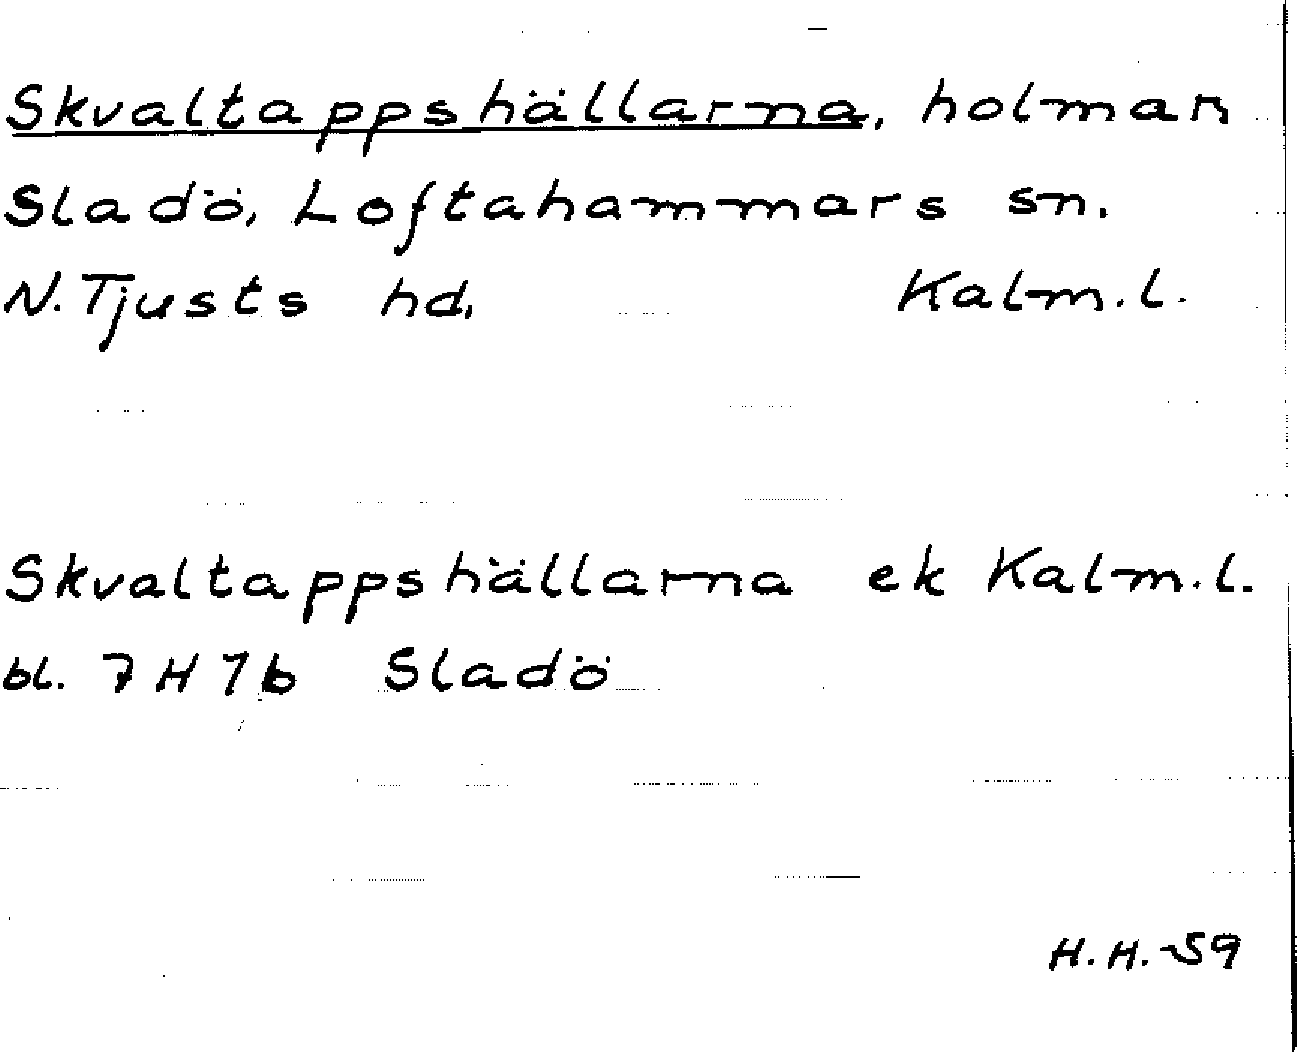 Skvaltappshällarna, holmar
Sladö, Loftahammars sn.
N. Tjusts hd, Kalm.l.
Skvaltappshällarna ek Kalm.l.
bl. 7 H 7 b Sladö
H.H.-59